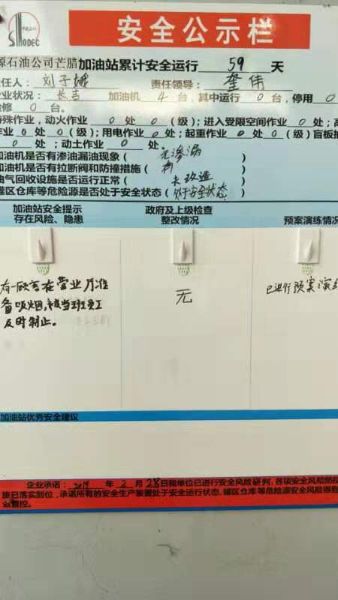 SINOPEC
安全公示栏
源石油公司芒腊加油站累计安全运行 59 天
任人: 刘子娥 责任领导: 李伟
业状况: 加油机 4 台,其中运行 0 台,停用 0
检修 0 台。
特殊作业,动火作业 0 处 0(级);进入受限空间作业 0
作业 0 处 0(级);用电作业 0 处;起重作业 0 处 0(级) 盲板抽
0 处;动土作业 0 处
加油机是否有渗油漏油现象( 无渗漏
加油机是否有拉断阀和防撞措施(
油气回收设施是否运行正常( 未改造
罐区仓库等危险源是否处于安全状态( 处于安全状态
加油站安全提示
存在风险、隐患
政府及上级检查
整改情况
预案演练情况
有一顾客在营业厅准
备吸烟,被当班员工
及时制止。
无
已进行预案演
加油站优秀安全建议
企业承诺: 年 2 月 28日我单位已进行安全风险研判,各项安全风险防控
施已落实到位,承诺所有的安全生产装置处于安全运行状态,罐区仓库等危险源安全风险得到
效管控。